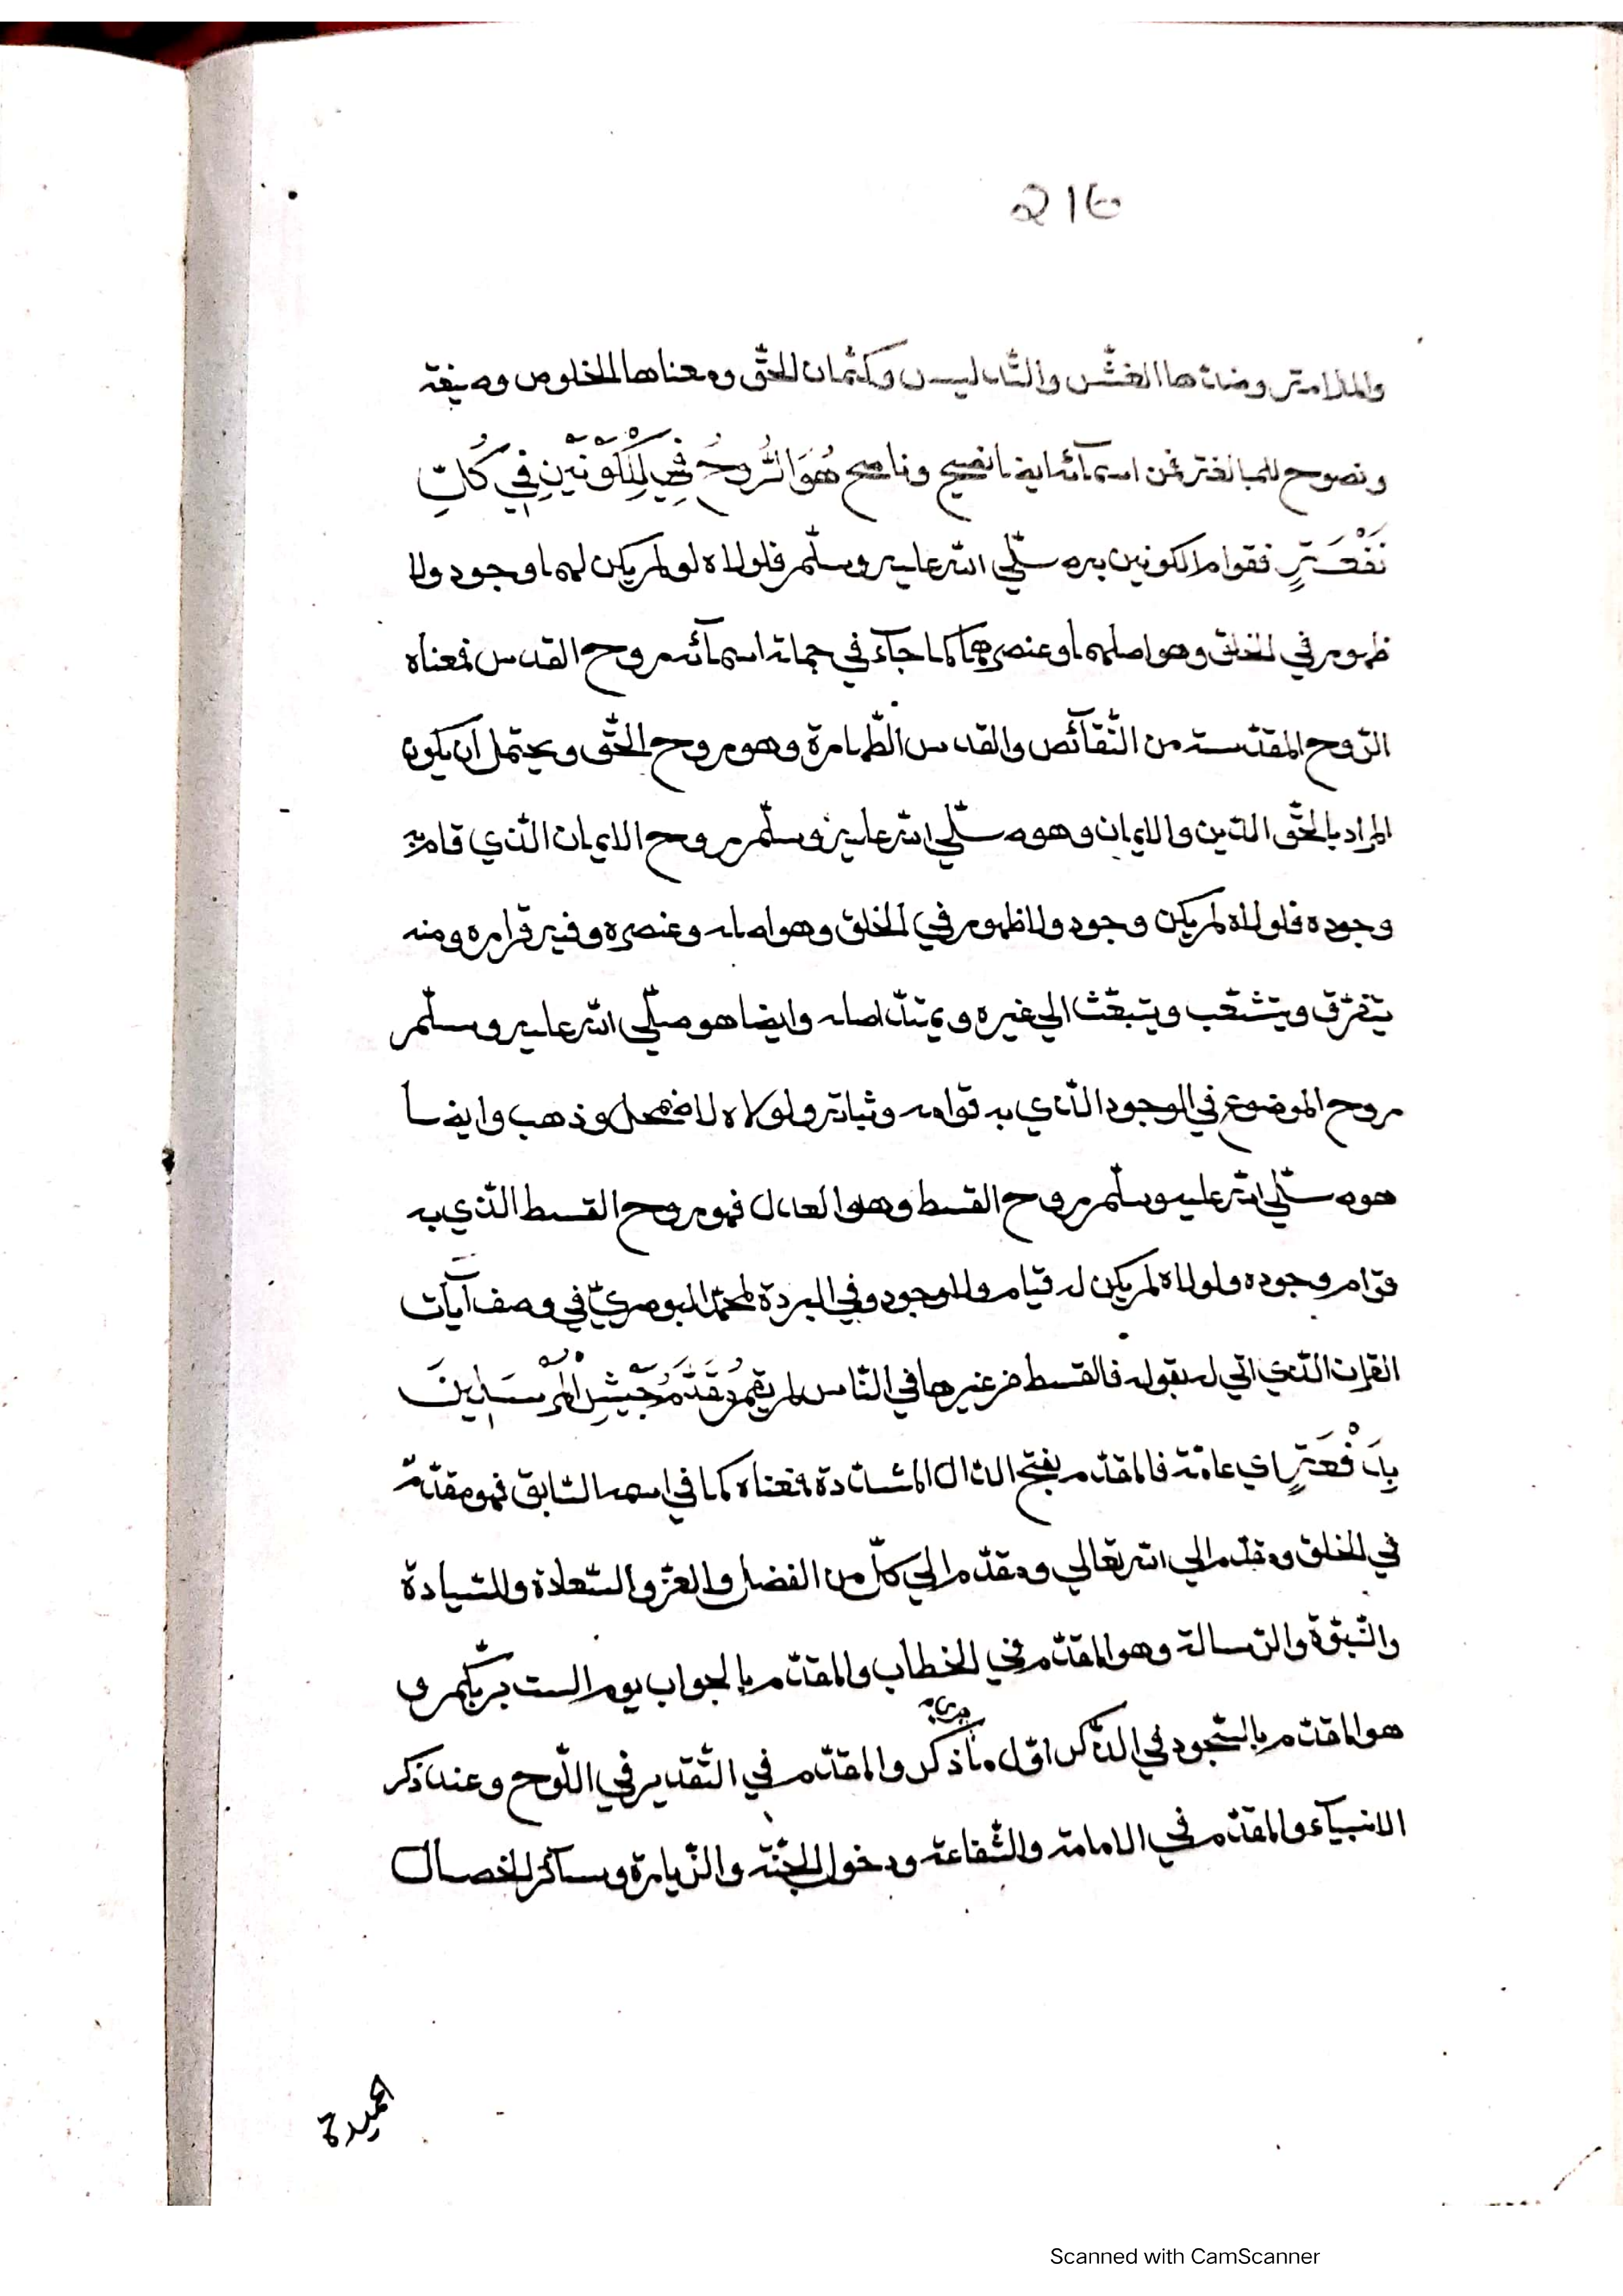 216
والملامة وضدها الغشّ والتّدليس وكتمان الحقّ ومعناها الخلوص وصيغة
ونصوح للمبالغة فمن اسمآئه ايضا نصيح وناصح هُوَ الرُّوحُ فِي الْكَوْنَيْنِ فِي كُلِّ
نَفْعَةٍ فقوام الكونين به صلّي الله عليه وسلّم فلولاه لو لم يكن لهما وجود ولا
ظهور في الخلق وهو اصلهما وعنصرهما كما جآء في جملة اسمآئه روح القدس فمعناه
الرّوح المقدّسة من النّقآئص والقدس الطّهارة وهو روح الحقّ ويحتمل ان يكون
المراد بالحقّ الدّين والايمان وهو صلّي الله عليه وسلّم روح الايمان الّذي قام به
وجوده فلولاه لم يكن وجود ولا ظهور في الخلق وهو اصله وعنصره وفيه قراره ومنه
يتفرّق ويتشعّب ويتبعّث الي غيره ويمتدّ اصله وايضا هو صلّي الله عليه وسلّم
روح الموضوع في الوجود الّذي به قوامه وثباته ولولاه لاضمحل وذهب وايضا
هو صلّي الله عليه وسلّم روح القسط وهو العدل فهو روح القسط الّذي به
قوام وجوده ولولاه لم يكن له قيام ولا وجود وفي البردة لمحمّد البوصريّ في وصف آيات
القران الّذي اتي له بقوله فالقسط من غيرها في النّاس لم يقم مُقَدَّمُ جَيْشِ الْمُرْسَلِينَ
بِدَفْعَةٍ اي عامّة فالمقدّم بفتح الدال المشدّدة فمعناه كما في اسمه السّابق فهو مقدّم
في الخلق ومقدّم الي الله تعالي ومقدّم الي كلّ من الفضل والعزّ والسّعادة والسّيادة
والنّبوّة والرّسالة وهو المقدّم في الخطاب والمقدّم بالجواب يوم الست بربّكم و
هو المقدّم بالسّجود في الذّكر اوّل ما ذكر والمقدّم في التّقدير في اللّوح وعند ذكر
الانبيآء والمقدّم في الامامة والشّفاعة ودخول الجنّة والزّيارة وسآئر الخصال
الحميدة
Scanned with CamScanner